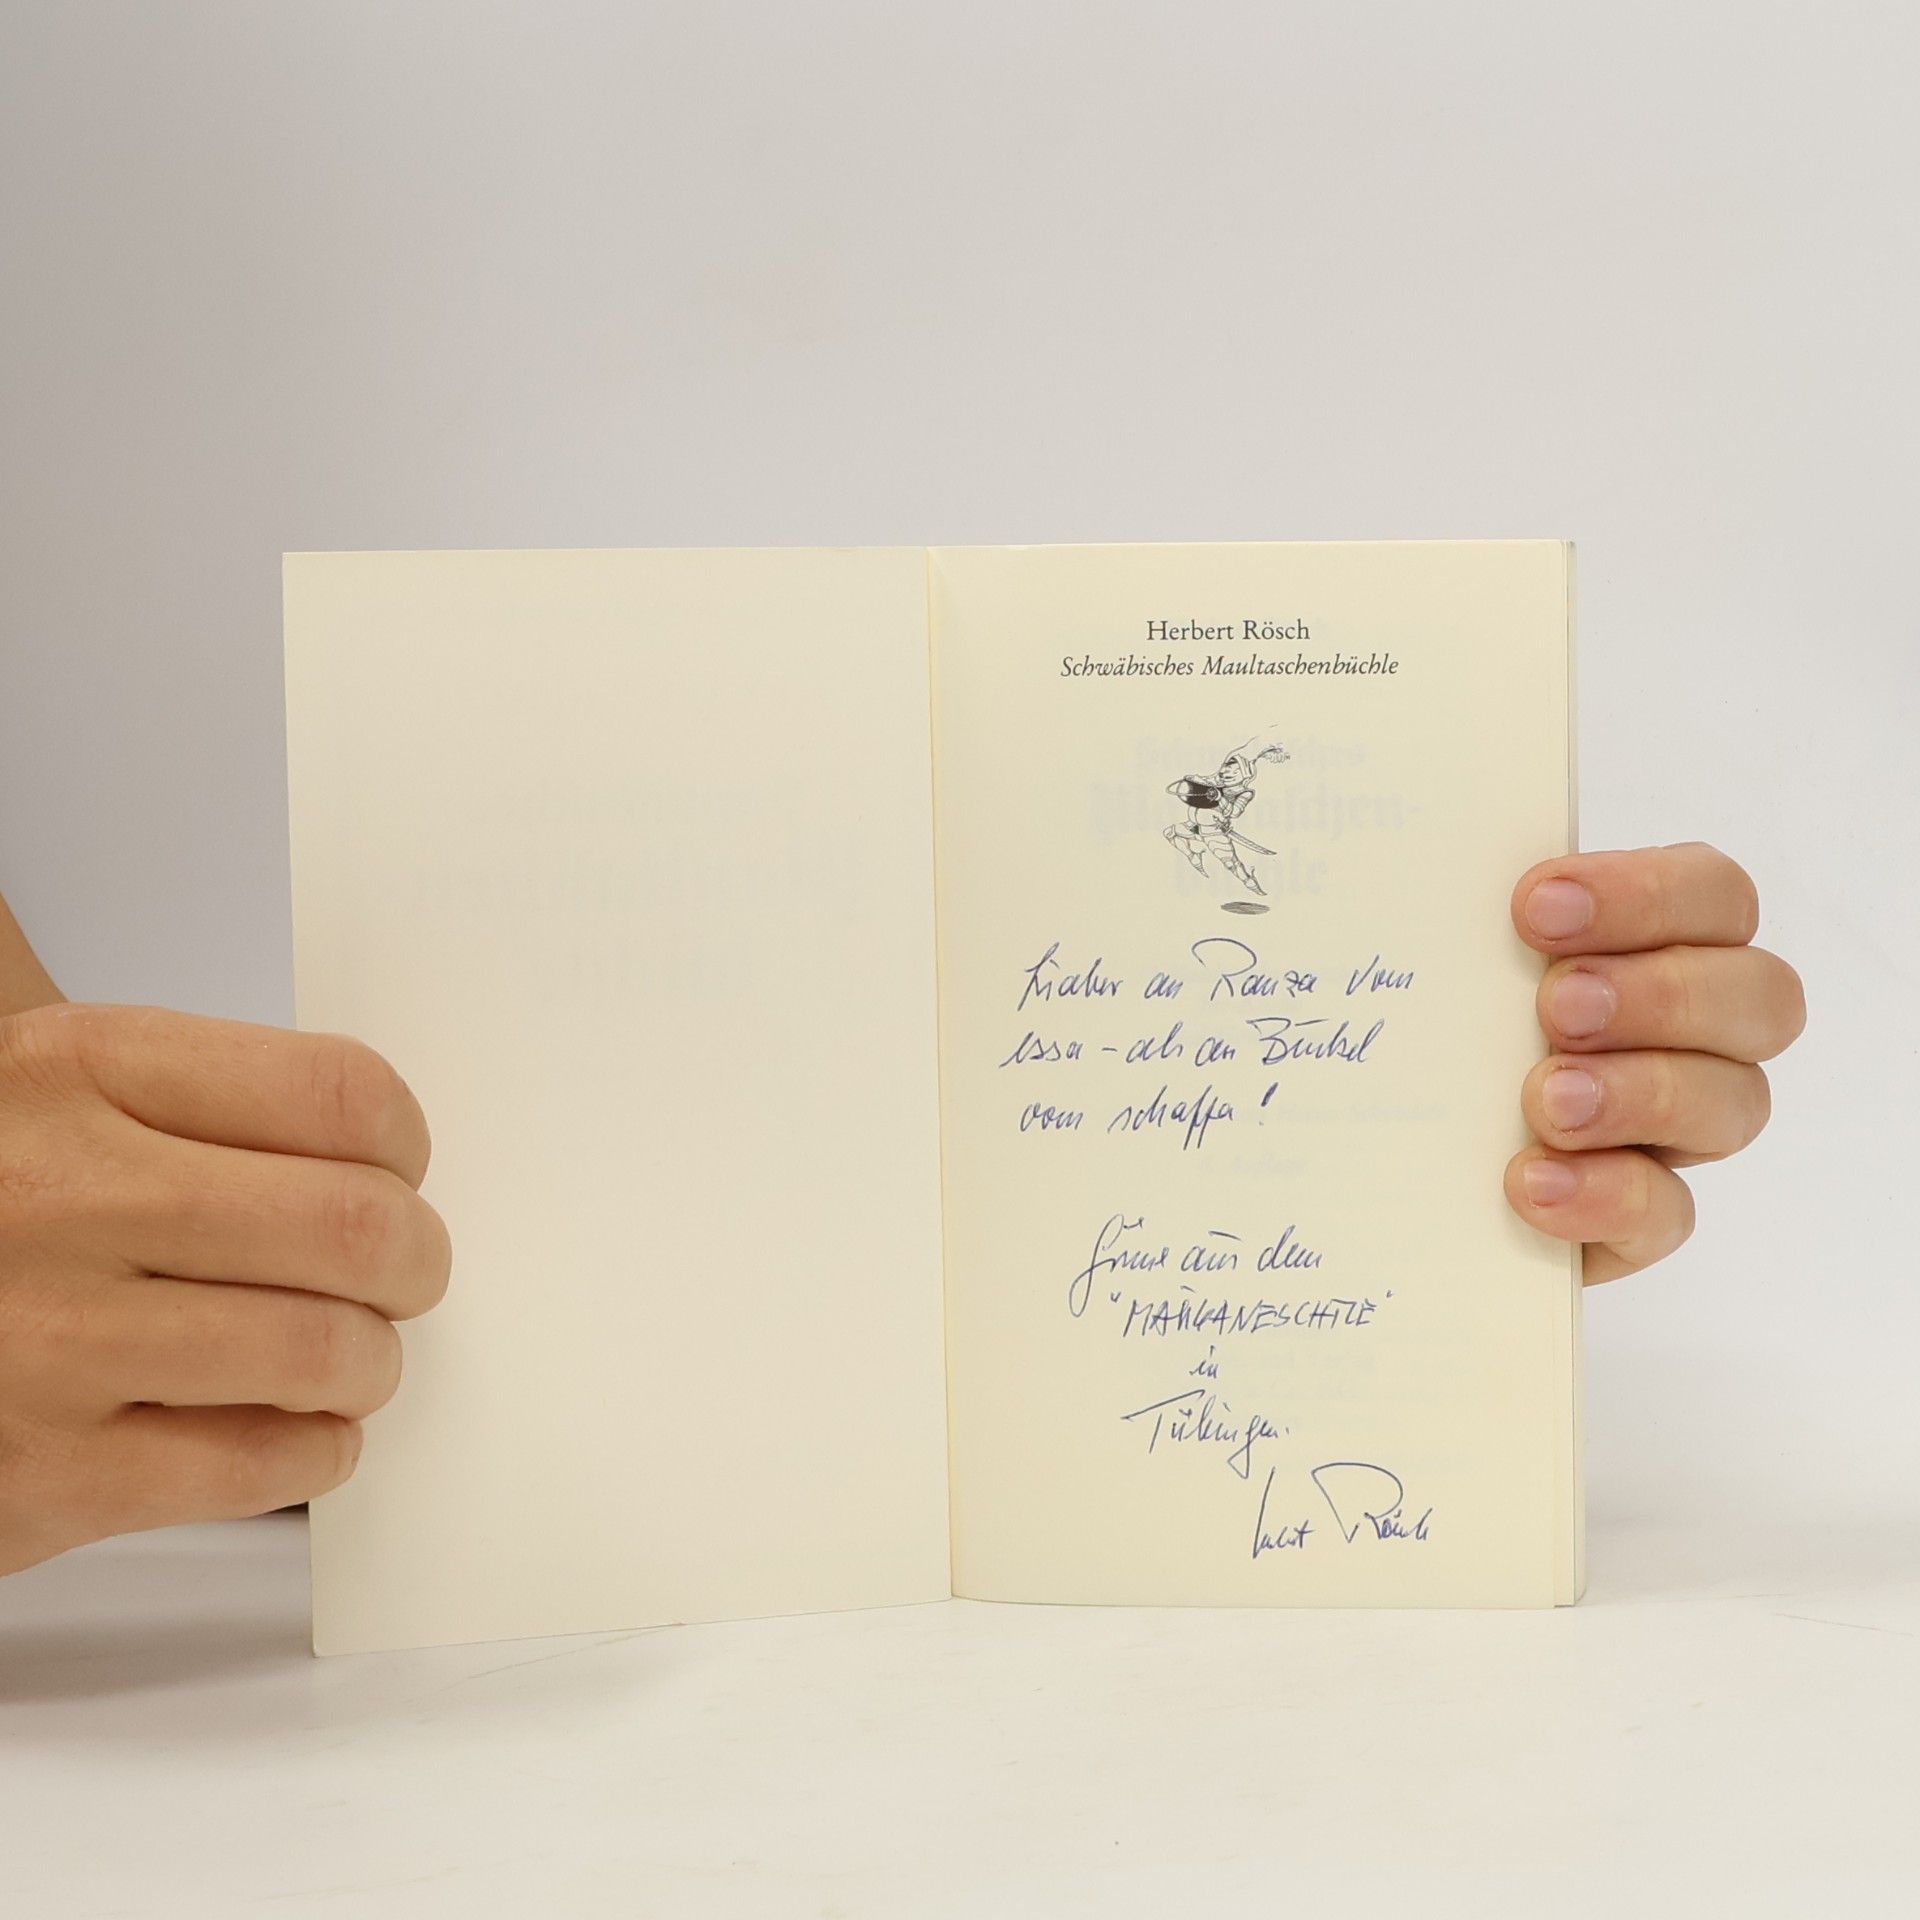 Herbert Rösch
Schwäbisches Maultaschenbüchle
Liaber an Ranza vom
essa – als an Buckel
vom schaffa!
Grüsse aus dem
"MAUGANESCHTLE"
in
Tübingen.
Herbert Rösch